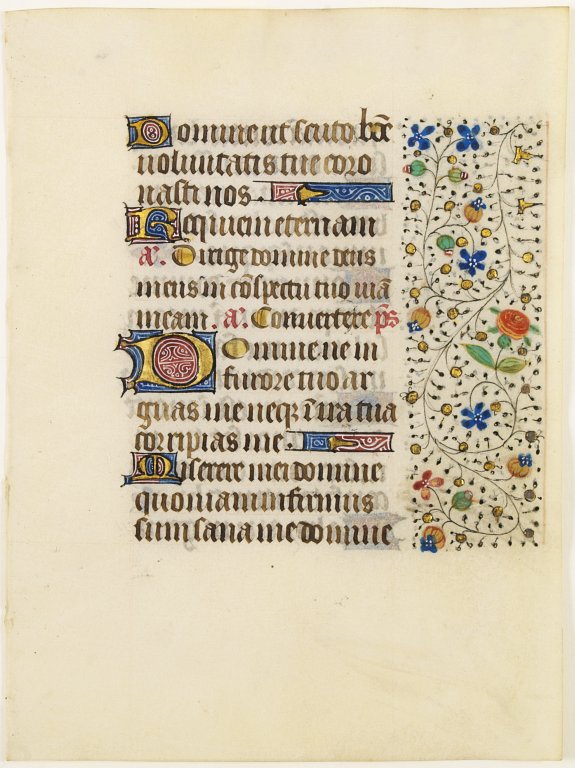 Domine ut scuto bōe
uoluntatis tue coro
nasti nos.
Requiem eternam
a'. Dirige domine deus
meus in cōspectu tuo uiā
meam. a'. Conuertere p̄s
Domine ne in
furore tuo ar
guas me neqꝫ ī ira tua
corripias me.
Miserere mei domine
quoniam infirmus
sum sana me domine